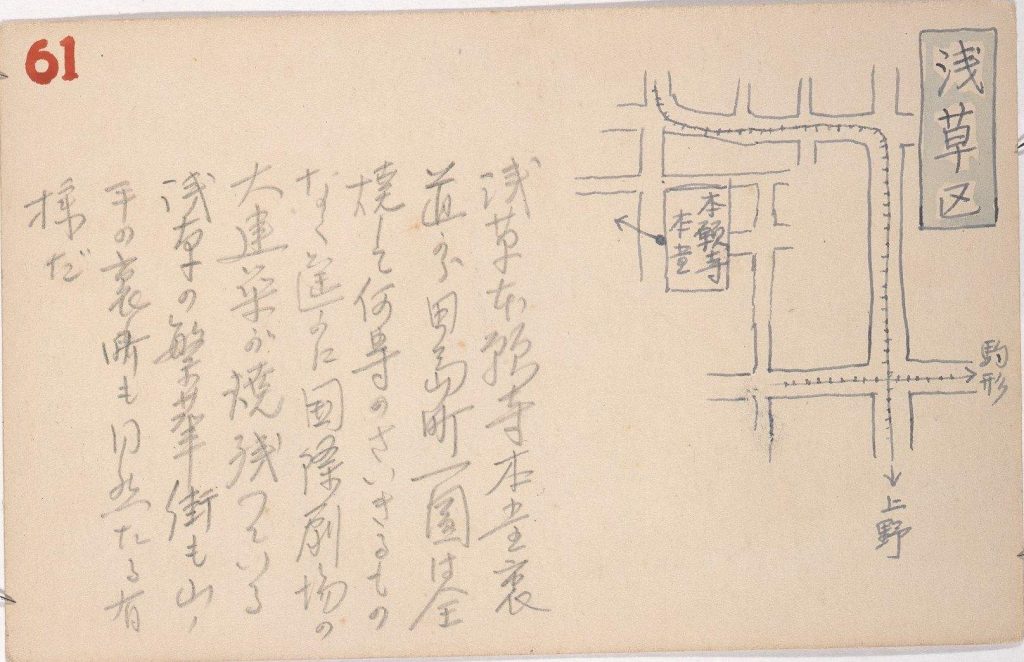 61
浅草区
本願寺
本堂
駒形
上野
浅草本願寺本堂裏
道から田島町一園は全
焼して何等のさいきるもの
なく遥かに国際劇場の
大建築が焼残っている
浅草の繁華街も山ノ
手の裏町も同然たる有
様だ